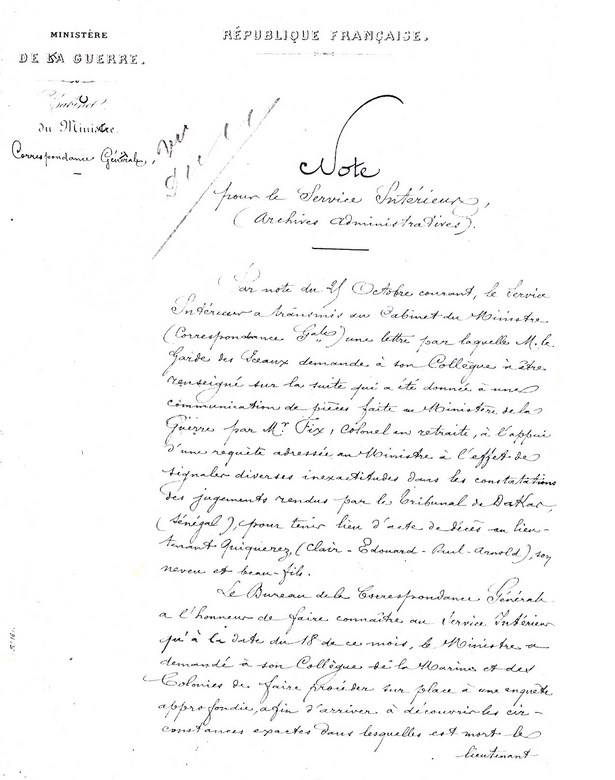 MINISTÈRE
DE LA GUERRE.
Cabinet
du Ministre.
Correspondance Générale.
RÉPUBLIQUE FRANÇAISE.
Note
pour le Service Intérieur,
(Archives administratives).
Par note du 25 Octobre courant, le Service
Intérieur a transmis au Cabinet du Ministre
(Correspondance Gale) une lettre par laquelle M. le
Garde des Sceaux demande à son Collègue à être
renseigné sur la suite qui a été donnée à une
communication de pièces faite au Ministère de la
Guerre par Mr. Fix, Colonel en retraite, à l'appui
d'une requête adressée au Ministre à l'effet de
signaler diverses inexactitudes dans les constatations
des jugements rendus par le Tribunal de Dakar
(Sénégal), pour tenir lieu d'acte de décès au lieu-
tenant Quiquerez, (Clair-Edouard-Paul-Arnold), son
neveu et beau-fils.
Le Bureau de la Correspondance Générale
a l'honneur de faire connaître au Service Intérieur
qu'à la date du 18 de ce mois, le Ministre a
demandé à son Collègue de la Marine et des
Colonies de faire procéder sur place à une enquête
approfondie, afin d'arriver à découvrir les cir-
constances exactes dans lesquelles est mort le
lieutenant